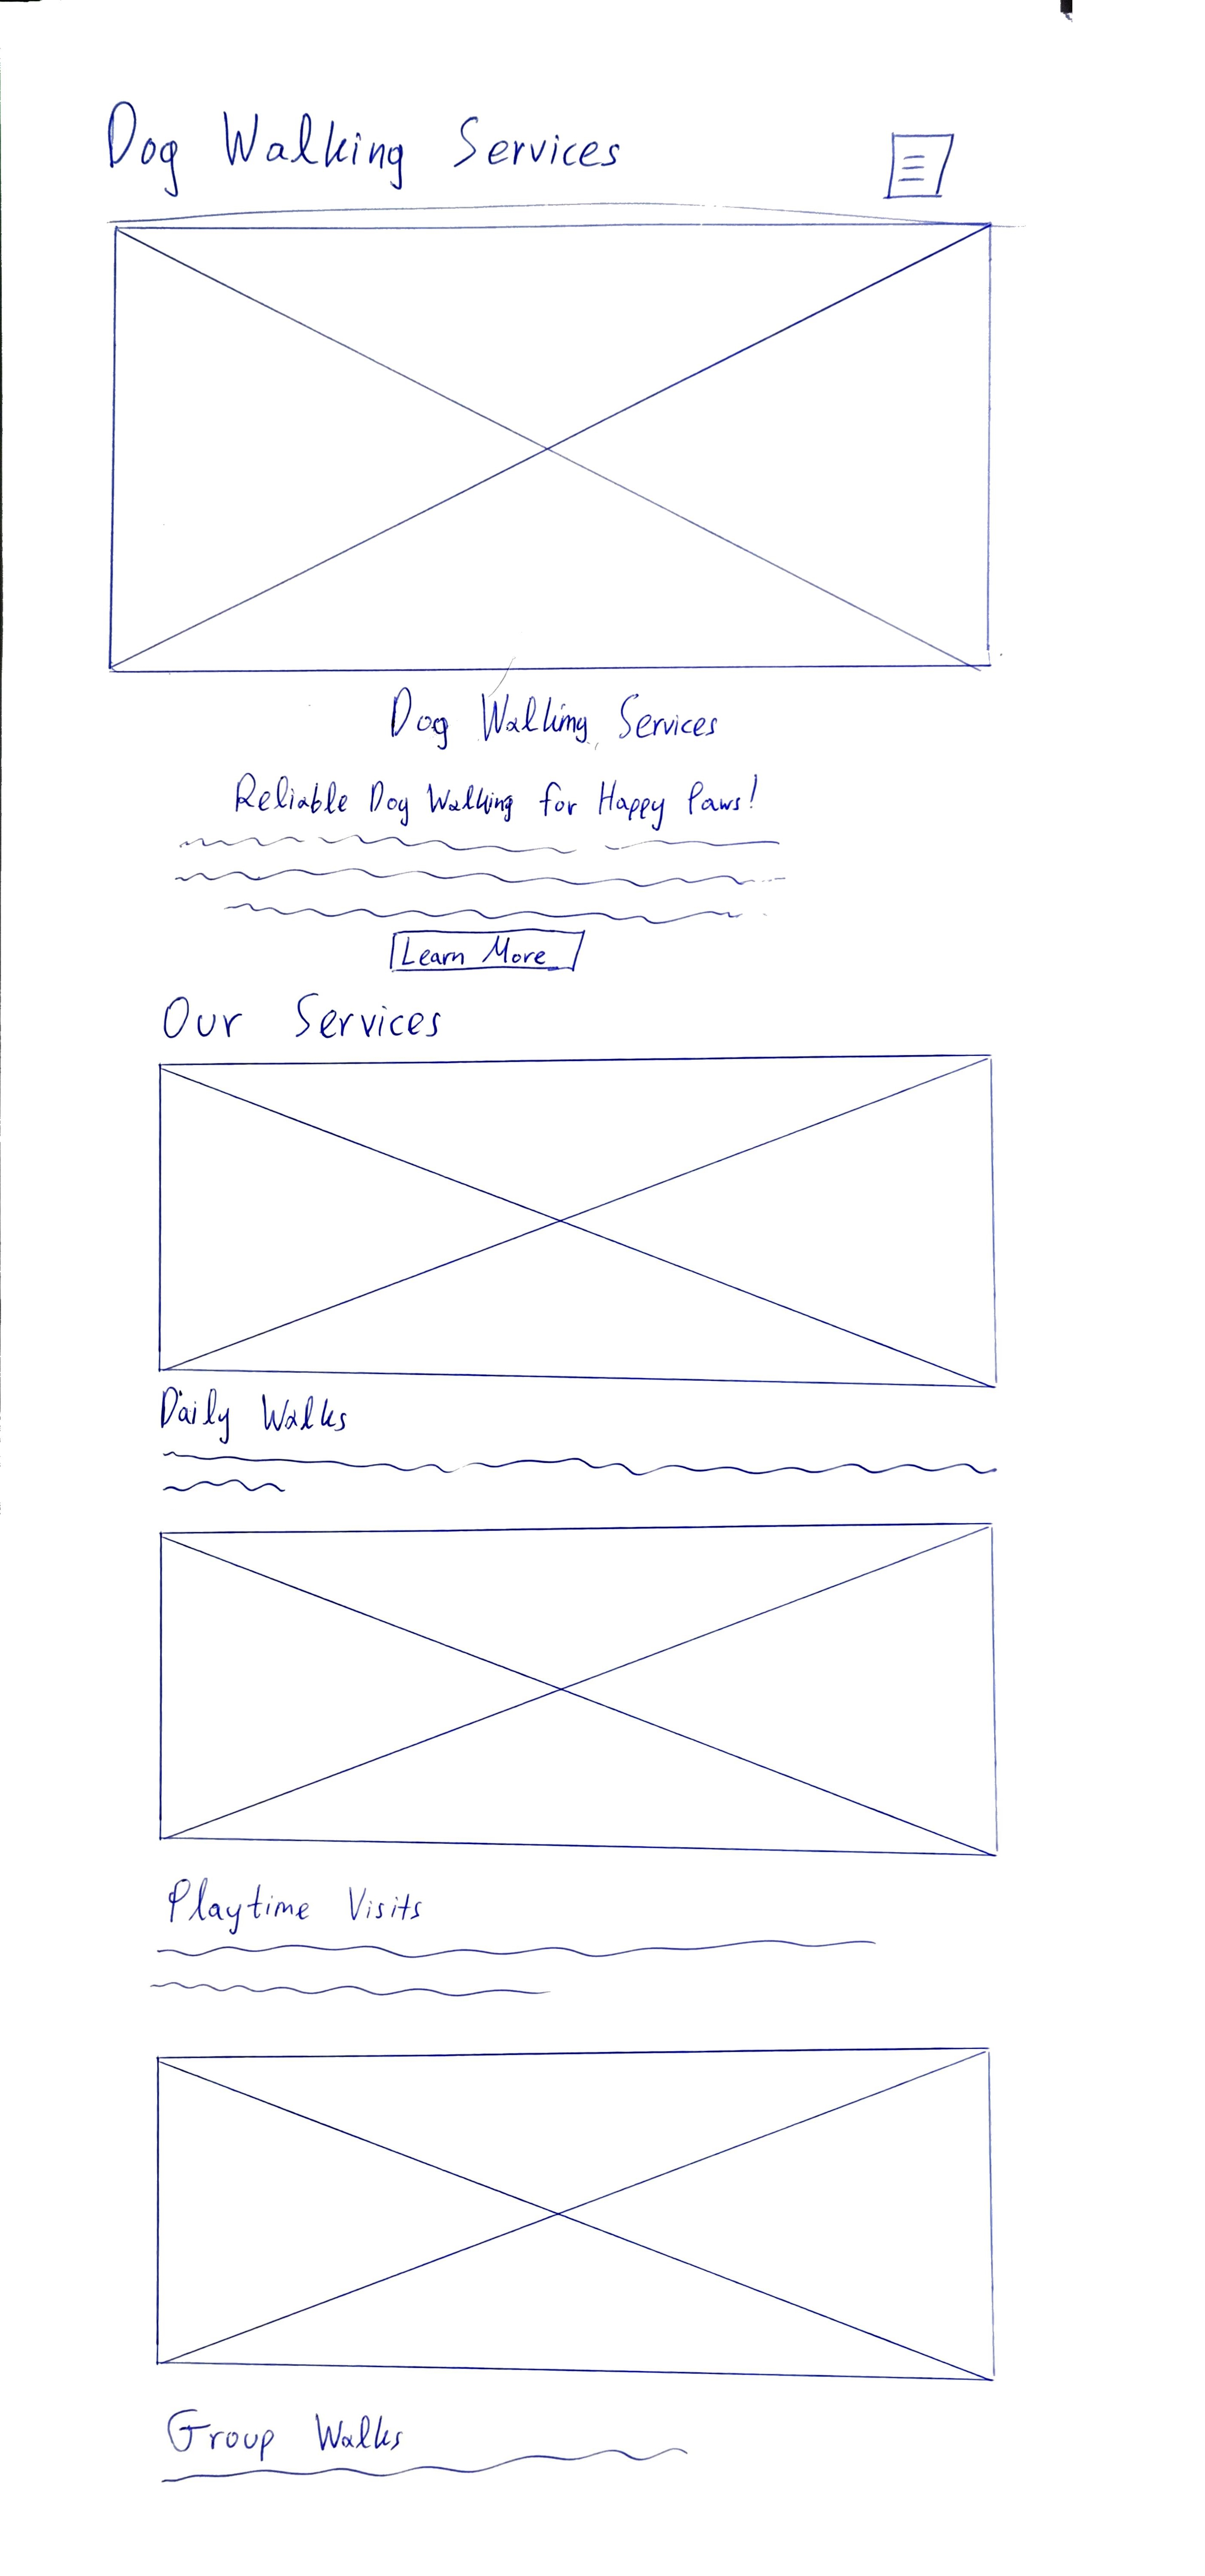 Dog Walking Services
Dog Walking Services
Reliable Dog Walking for Happy Paws!
Learn More
Our Services
Daily Walks
Playtime Visits
Group Walks